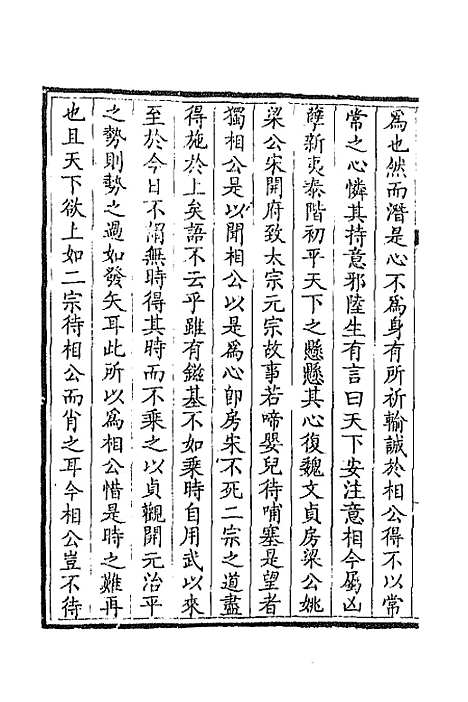 為也然而潛是心不為身有所祈輸誠於相公得不以常
常之心憐其持意邪陸生有言曰天下安注意相今屬凶
孽新夷泰階初平天下之懸懸其心復魏文貞房梁公姚
梁公宋開府致太宗元宗故事若啼嬰兒待哺塞是望者
獨相公是以聞相公以是為心即房宋不死二宗之道盡
得施於上矣語不云乎雖有鎡基不如乘時自用武以來
至於今日不閒無時得其時而不乘之以貞觀開元治平
之勢則勢之過如發矢耳此所以為相公惜是時之難再
也且天下欲上如二宗待相公而肖之耳今相公豈不待